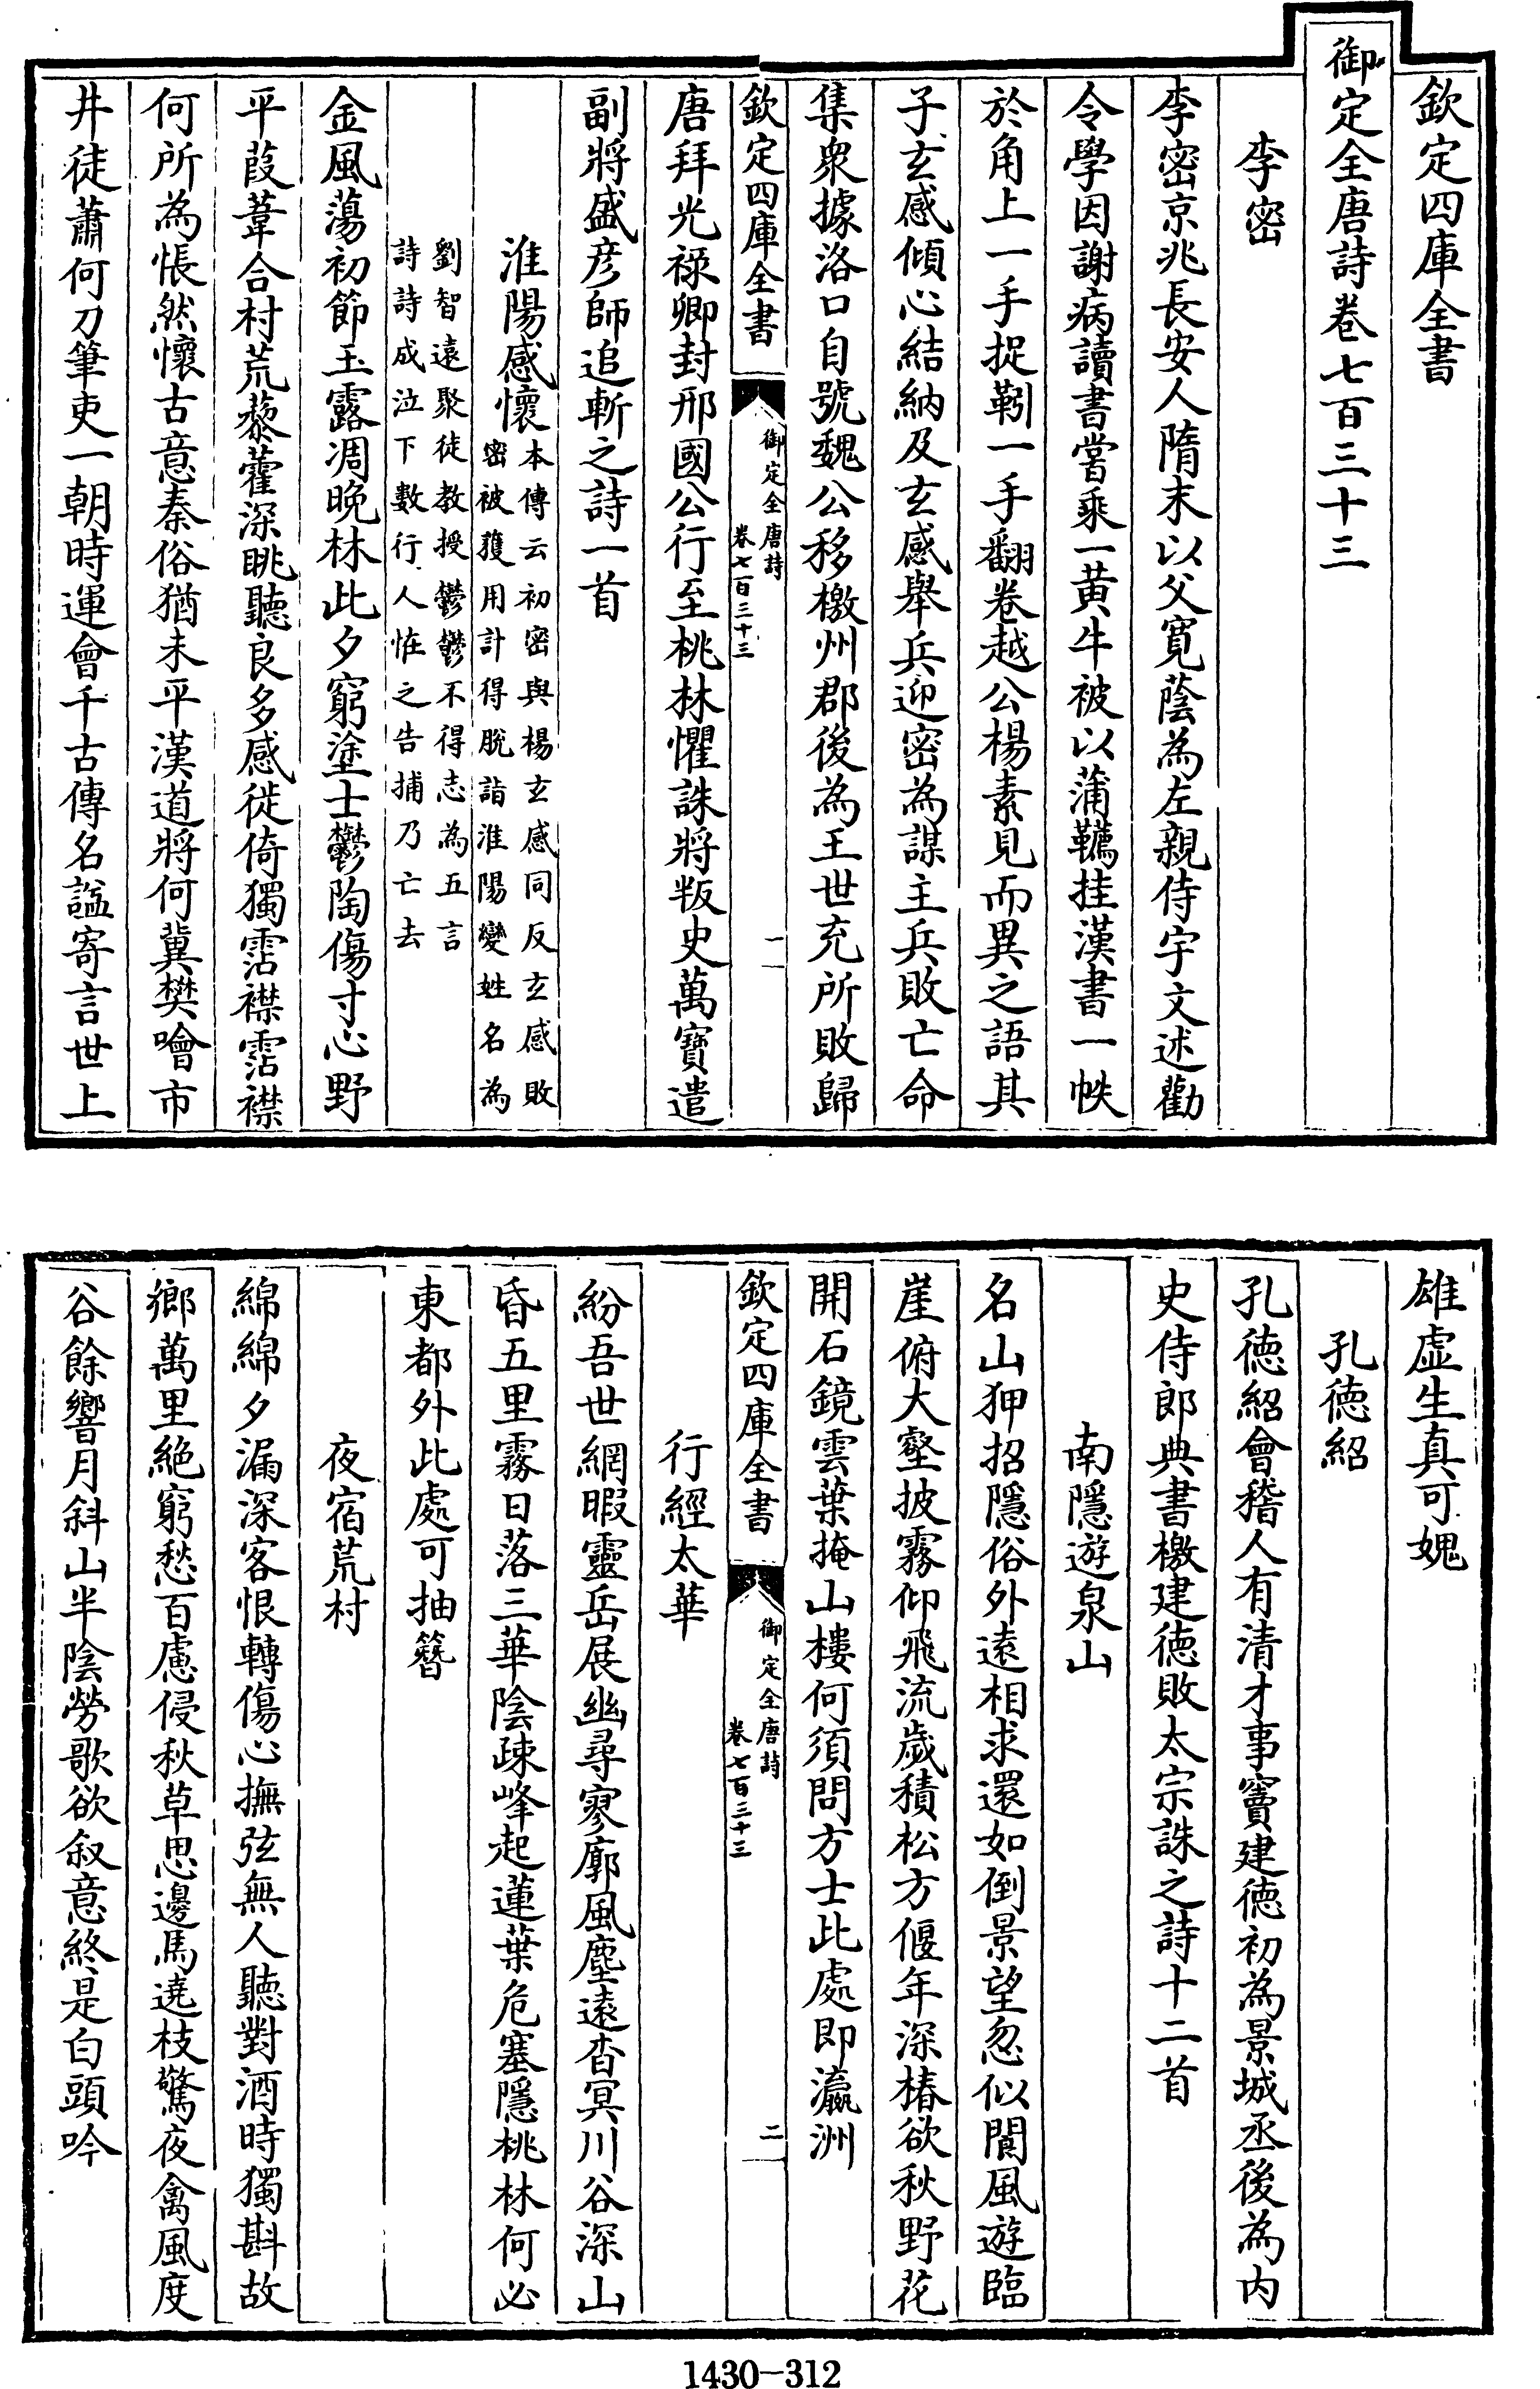 欽定四庫全書
御定全唐詩卷七百三十三
李密
李密京兆長安人隋末以父寬蔭為左親侍宇文述勸
令學因謝病讀書嘗乘一黃牛被以蒲韉挂漢書一帙
於角上一手捉靷一手翻卷越公楊素見而異之語其
子玄感傾心結納及玄感舉兵迎密為謀主兵敗亡命
集衆據洛口自號魏公移檄州郡後為王世充所敗歸
欽定四庫全書
御定全唐詩
卷七百三十三
一
唐拜光祿卿封邢國公行至桃林懼誅將叛史萬寶遣
副將盛彦師追斬之詩一首
淮陽感懷
本傳云初密與楊玄感同反玄感敗
密被獲用計得脫詣淮陽變姓名為
劉智遠聚徒教授鬱鬱不得志為五言
詩詩成泣下數行人怪之告捕乃亡去
金風蕩初節玉露凋晚林此夕窮塗士鬱陶傷寸心野
平葭葦合村荒藜藿深眺聽良多感徙倚獨霑襟霑襟
何所為悵然懷古意秦俗猶未平漢道將何冀樊噲市
井徒蕭何刀筆吏一朝時運會千古傳名諡寄言世上
雄虛生真可媿
孔德紹
孔德紹會稽人有清才事竇建德初為景城丞後為內
史侍郎典書檄建德敗太宗誅之詩十二首
南隱遊泉山
名山狎招隱俗外遠相求還如倒景望忽似閬風遊臨
崖俯大壑披霧仰飛流歲積松方偃年深椿欲秋野花
開石鏡雲葉掩山樓何須問方士此處即瀛洲
欽定四庫全書
御定全唐詩
卷七百三十三
二
行經太華
紛吾世網暇靈岳展幽尋寥廓風塵遠杳冥川谷深山
昏五里霧日落三華陰疎峰起蓮葉危塞隱桃林何必
東都外此處可抽簪
夜宿荒村
綿綿夕漏深客恨轉傷心撫弦無人聽對酒時獨斟故
鄉萬里絶窮愁百慮侵秋草思邊馬遶枝驚夜禽風度
谷餘響月斜山半陰勞歌欲叙意終是白頭吟
1430-312